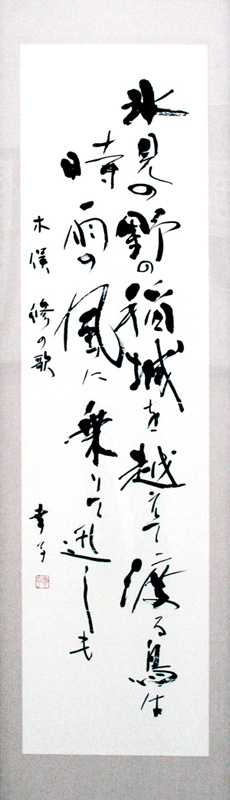 氷見の野の稲城を越えて渡る鳥は
時雨の風に乗りて迅しも
木俣修の歌